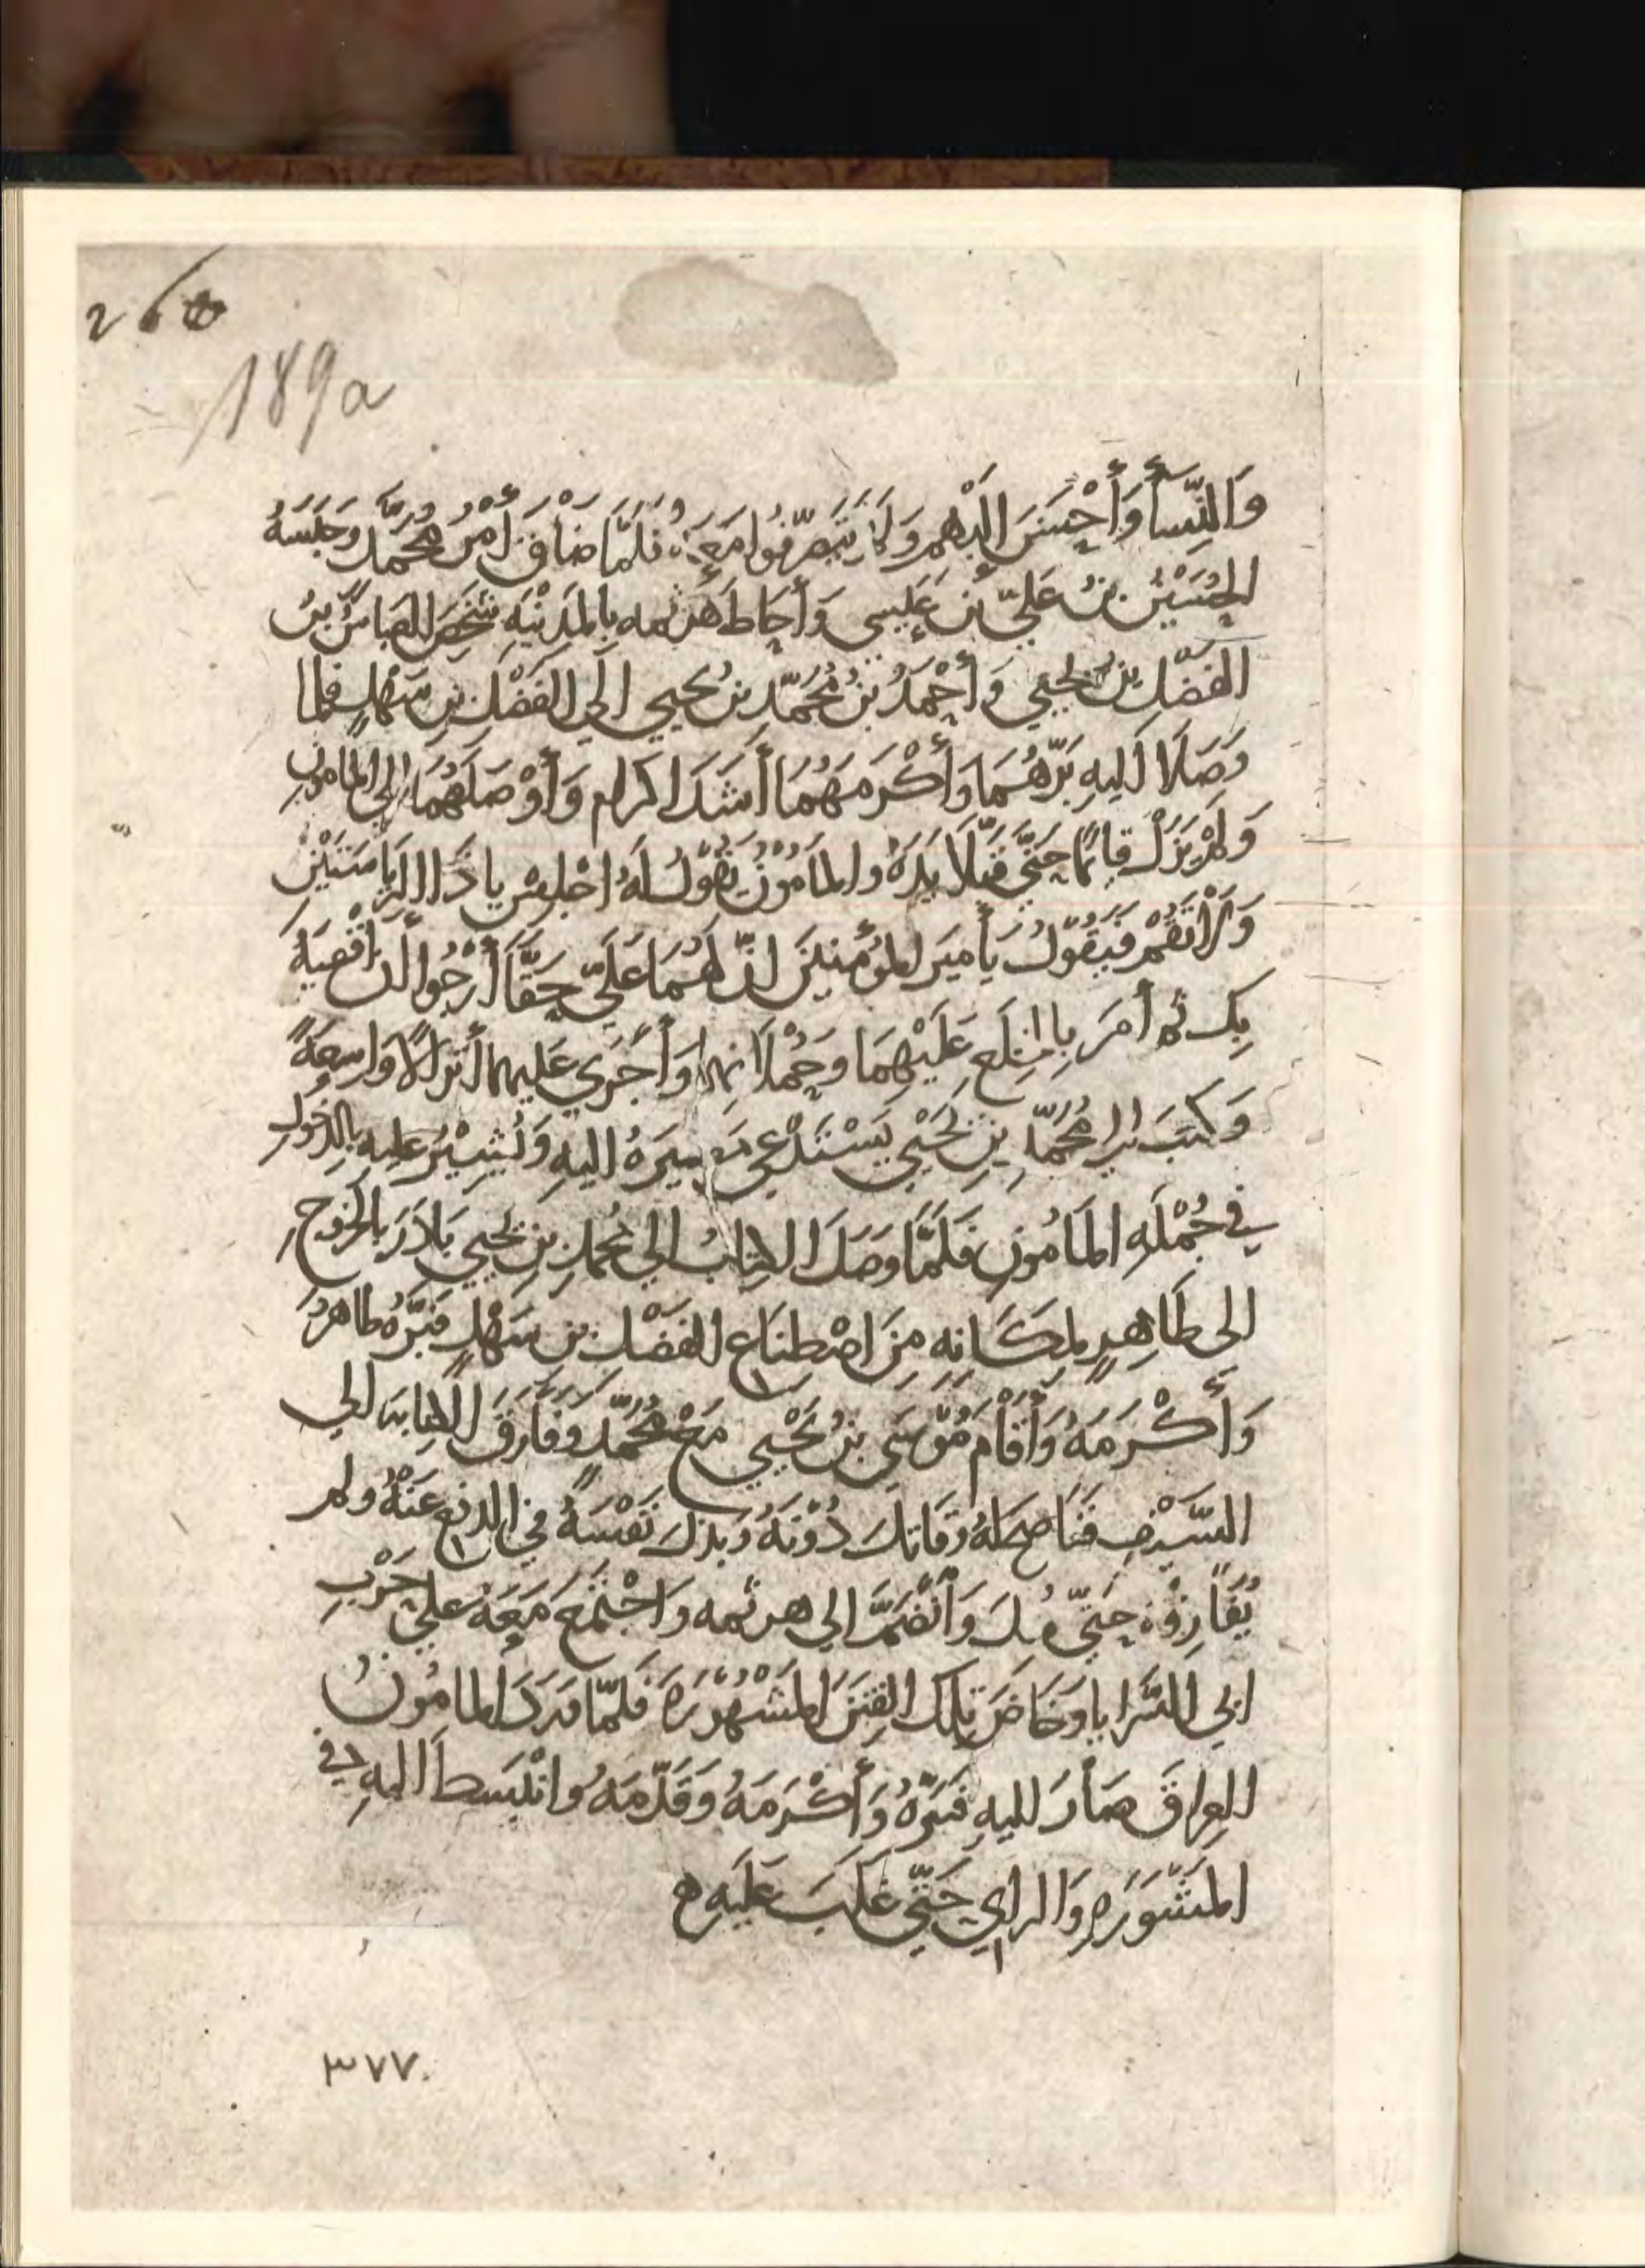 260
189a
وَالنِّسَأ وَأَحْسَنَ إِلَيْهِم وَلَمْ يَتَصَرَّفُوا مَعَهُ فَلَمَّا ضَاقَ أَمْرُ مُحَمَّد وَحَبَسَهُ
الحُسَيْنُ بنُ عَليّ بن عِيسى وَأَحَاطَ هَرثمه بالمَدِيْنَهِ شَخَصَ العباسُ بنُ
الفَضْلِ بن يَحيي وَأَحْمَدُ بنُ مُحَمَّدِ بن يحيي الَي الفَضْلِ بنِ سَهْلٍ فلما
وَصَلَا الَيهِ بَرَّهُمَا وَأَكْرَمَهُمَا أَشَدَ اكرام وَأَوْصَلَهُمَا إلي المامون
وَلمْ يَزَلْ قَائمًا حَتَّي قَبَّلَا يَدَهُ والمَأمُوْنُ يَقُوْلُ لَهُ اجْلِسْ يا ذَا الرِيَاسَتَيْنِ
وَلَا تَقُمْ فَيَقُوْلُ يَأميرَ المُؤمنينَ انَّ لَهُمَا عَلَيّ حَقًّا أَرْجُوا أَن أقْضيَهُ
بِكَ ثم أمَرَ بالخِلَعِ عَلَيْهِمَا وَحُمْلَانٍ وَأَجْرَي عَليهما أَنزالًا وَاسِعَةً
وَكتبَ الي مُحَمَّدِ بنِ يَحْيَي يَسْتَدْعِي مَسيرَهُ اليهِ وَيُشِيْرُ عليهِ بِالدخُولِ
في جُمْلَهِ المَأمُونِ فَلَمَّا وَصَلَ الكِتَابُ الي مُحمدِ بنِ يَحيي بَادَرَ بالخرُوجِ
الى طَاهِرٍ لِمكَانِهِ مِنَ اصْطِنَاعِ الفَضْلِ بنِ سَهْلٍ فَبَرَّهُ طاهرُ
وَأَكْرَمَهُ وَأَقَامَ مُوْسَي بنُ يَحْيي مَعَ مُحُمَّد وَفَارَقَ الكِتابَه الي
السَّيْفِ فَنَاصَحَ لَهُ وَقَاتَلَ دُوْنَهُ وَبذلَ نَفْسَهُ في الدفعِ عَنْهُ ولم
يُفَارِقْهُ حَتّي قُتِلَ وَأنْضَمَّ الي هرثمه وَاجْتَمَعَ مَعَهُ عَليَ حَرْبِ
ابي السَّرايا وَخَاضَ تِلكَ الفِتَنَ المَشْهُوْرَهَ فَلَمَّا وَرَدَ المامُونُ
العِراقَ صَارَ اليهِ فَبَرَّهُ وَأَكْرَمَهُ وَقَدَّمَهُ وانْبَسَطَ اليهِ في
المَشُورَهِ وَالراي حَتّي غَلَبَ عَلَيهِ ه
٣٧٧